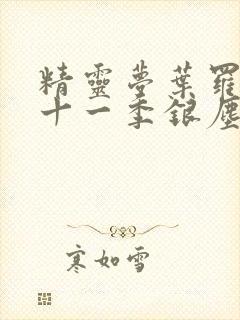 精靈夢葉羅
十一季銀塵
寒如雪